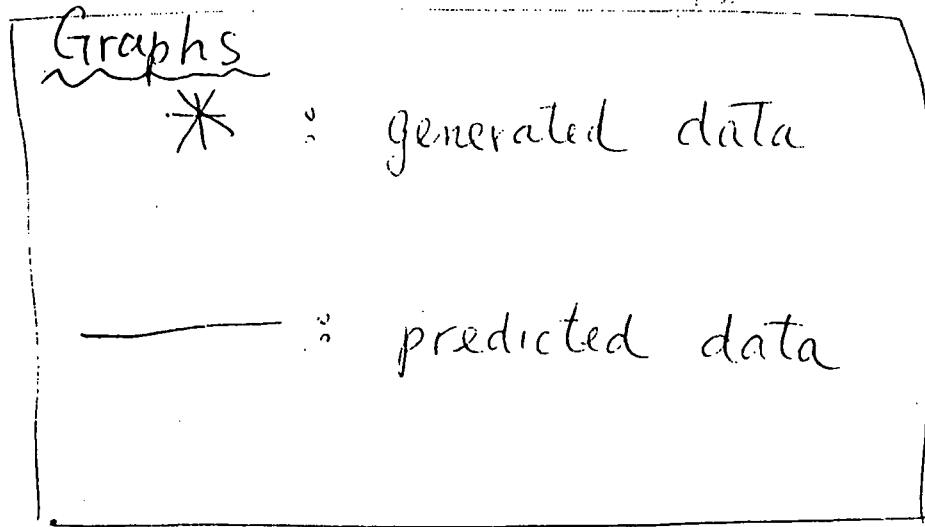 Graphs
* : generated data
— : predicted data